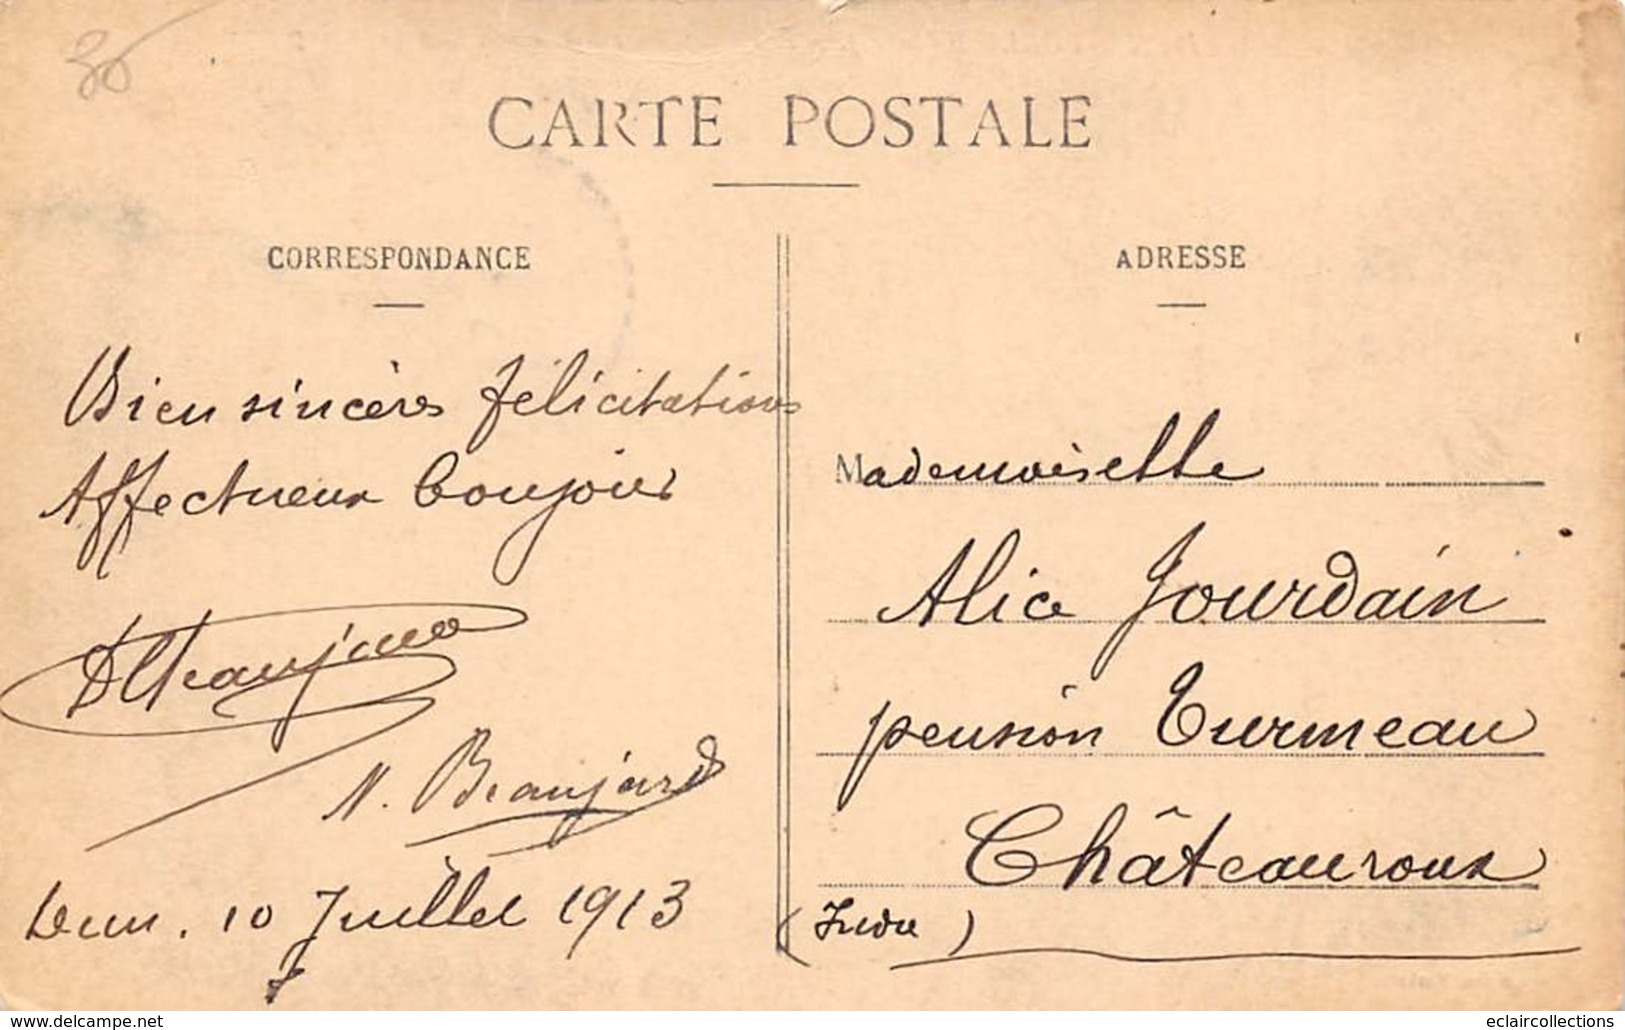 CARTE POSTALE
CORRESPONDANCE
Bien sincères félicitations
Affectueux bonjours
N. Beaujard
10 Juillet 1913
ADRESSE
Mademoiselle
Alice Jourdain
pension Turmeau
Châteauroux
(Indre)
www.delcampe.net
eclaircollections